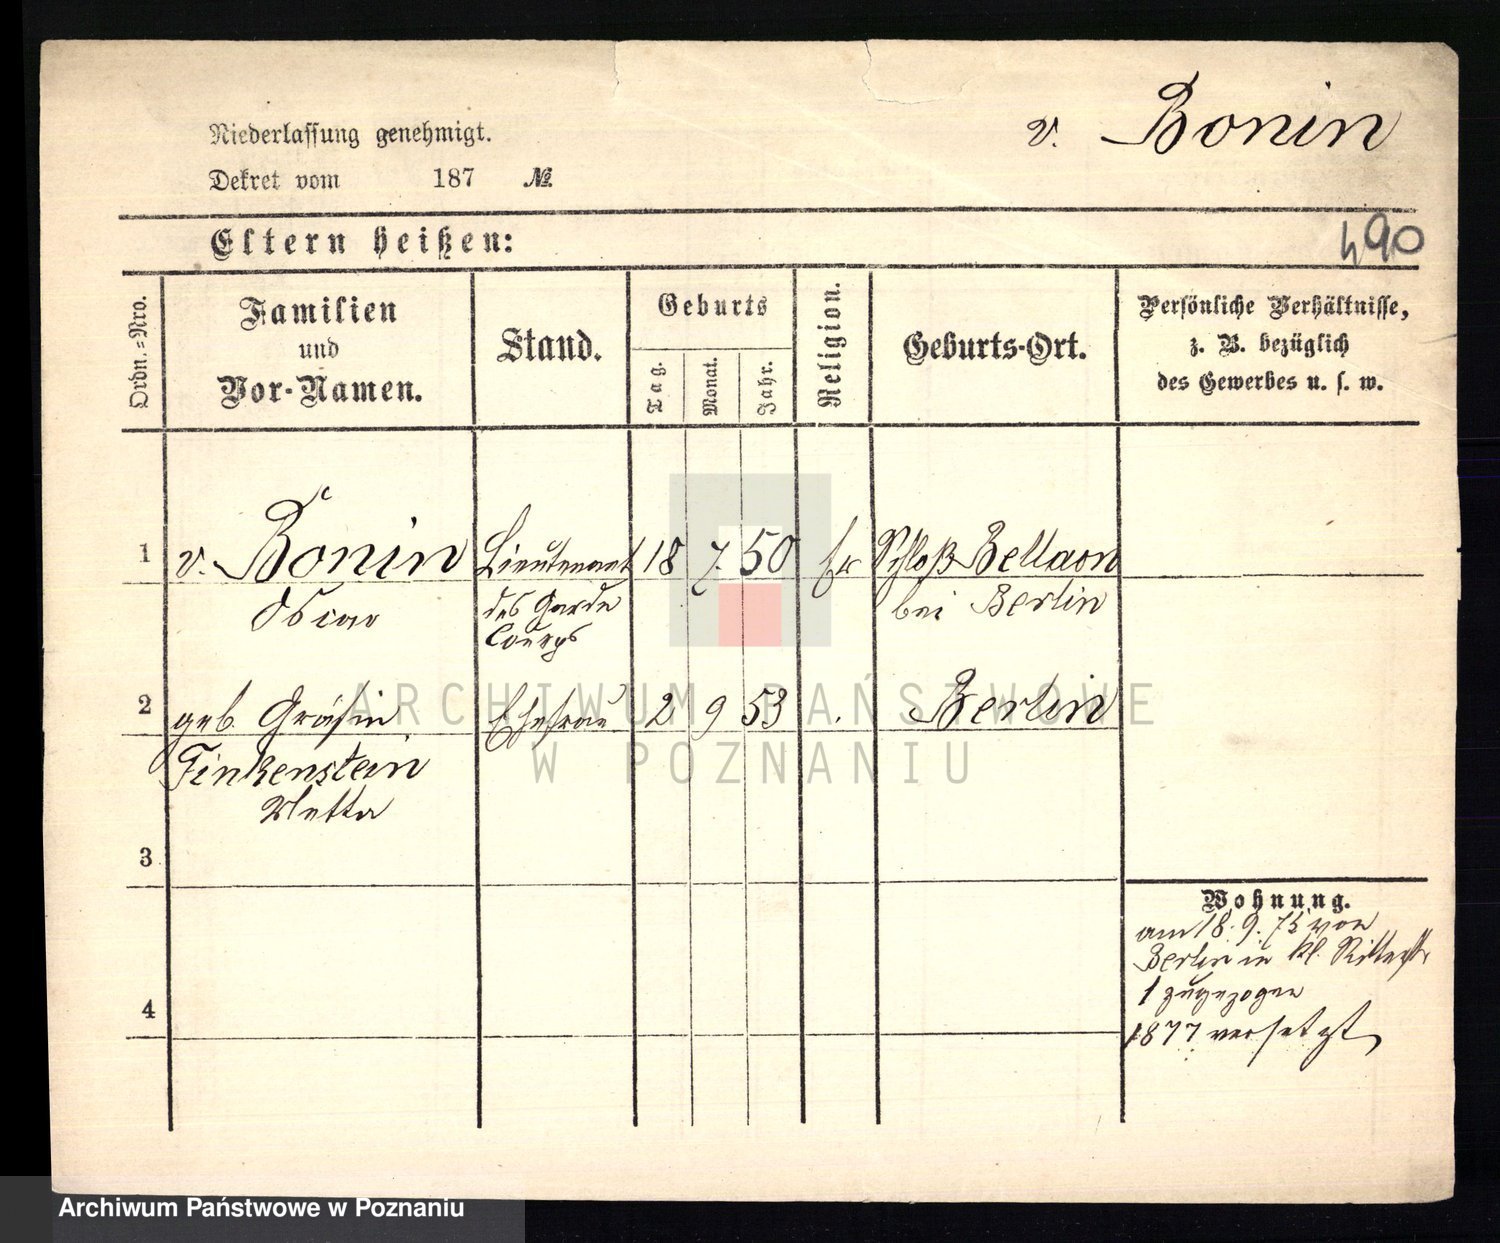 v. Bonin
Niederlassung genehmigt.
Dekret vom 187 №.
490
Eltern heißen:
Ordn.=Nro.
Familien
und
Vor-Namen.
Stand.
Geburts
Tag.
Monat.
Jahr.
Religion.
Geburts-Ort.
Persönliche Verhältnisse,
z. B. bezüglich
des Gewerbes u. s. w.
1 v. Bonin Lieutenant 18 7. 50 Schloß
Oscar des Garde bei Berlin
Courps
2 geb. Gräfin Ehefrau 2 9 53 Berlin
Finkenstein
3
4
Wohnung.
am 18. 9. 75 von
Berlin in kl. Ritterstr
1 zugezogen
1877 versetzt
ARCHIWUM PAŃSTWOWE
W POZNANIU
Archiwum Państwowe w Poznaniu